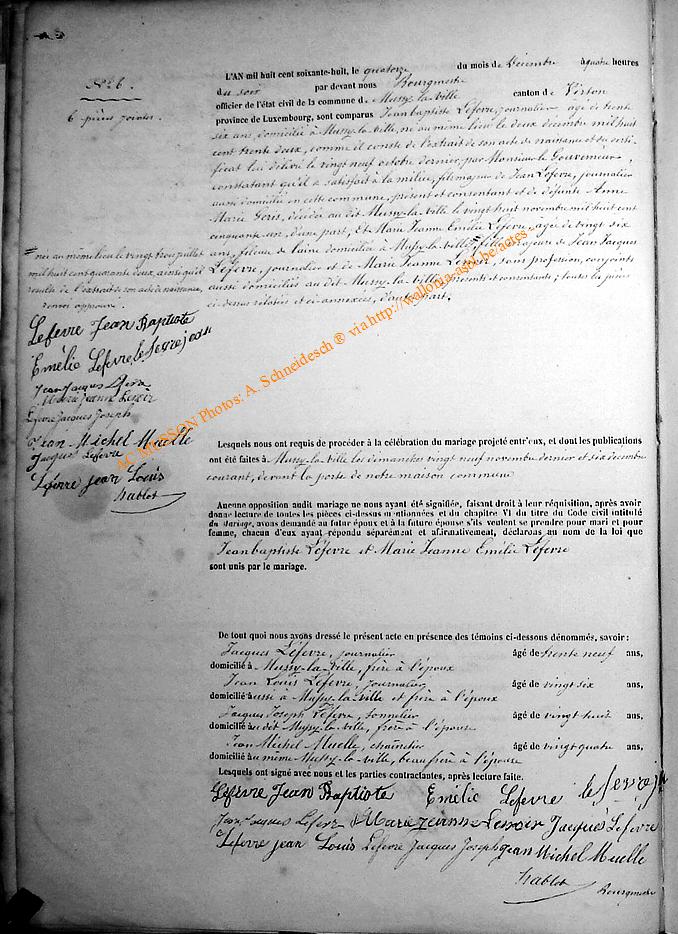 N.º 26.
6 pièces jointes.
L'AN mil huit cent soixante-huit, le quatorze du mois de Décembre à quatre heures
du soir par devant nous Bourgmestre
officier de l'état civil de la commune de Mussy-la-Ville canton de Virton
province de Luxembourg, sont comparus Jean baptiste Lefevre, journalier âgé de trente
six ans, domicilié à Mussy-la-Ville, né au même lieu le deux décembre mil huit
cent trente deux, comme il conste de l'extrait de son acte de naissance et du certi-
ficat lui délivré le vingt neuf octobre dernier, par Monsieur le Gouverneur,
constatant qu'il a satisfait à la milice, fils majeur de Jean Lefevre, journalier
aussi domicilié en cette commune, présent et consentant et de défunte Anne
Marie Goris, décédée au dit Mussy-la-Ville le vingt huit novembre mil huit cent
cinquante un, d'une part, Et Marie Jeanne Emélie Lefevre, âgée de vingt six
ans, fileuse de laine domiciliée à Mussy-la-Ville = fille majeure de Jean Jacques
Lefevre, journalier et de Marie Jeanne Lenoir, sans profession, conjoints
aussi domiciliés au dit Mussy-la-Ville, présents et consentants; toutes les pièces
ci-dessus relatées et ci-annexées, d'autre part.
= née au même lieu le vingt trois juillet
mil huit cent quarante deux, ainsi qu'il
résulte de l'extrait de son acte de naissance,
renvoi approuvé.
Lefevre Jean Baptiste
Emélie Lefevre
Jean Jacques Lefevre
Marie Jeanne Lenoir
Lefevre Jacques Joseph
Jean Michel Muelle
Jacques Lefevre
Lefevre jean Louis
Hablot
Lesquels nous ont requis de procéder à la célébration du mariage projeté entr'eux, et dont les publications
ont été faites à Mussy-la-Ville les dimanches vingt neuf novembre dernier et six décembre
courant, devant la porte de notre maison commune
Aucune opposition audit mariage ne nous ayant été signifiée, faisant droit à leur réquisition, après avoir
donné lecture de toutes les pièces ci-dessus mentionnées et du chapitre VI du titre du Code civil intitulé
du Mariage, avons demandé au futur époux et à la future épouse s'ils veulent se prendre pour mari et pour
femme, chacun d'eux ayant répondu séparément et affirmativement, déclarons au nom de la loi que
Jean baptiste Lefevre et Marie Jeanne Emélie Lefevre
sont unis par le mariage.
De tout quoi nous avons dressé le présent acte en présence des témoins ci-dessous dénommés, savoir :
Jacques Lefevre, journalier âgé de trente neuf ans,
domicilié à Mussy-la-Ville, frère à l'époux
Jean Louis Lefevre, journalier âgé de vingt six ans,
domicilié aussi à Mussy-la-Ville et frère à l'époux
Jacques Joseph Lefevre, tonnelier âgé de vingt huit ans,
domicilié au dit Mussy-la-Ville, frère à l'épouse
Jean Michel Muelle, âgé de vingt quatre ans,
domicilié au même Mussy-la-Ville, beau frère à l'épouse
Lesquels ont signé avec nous et les parties contractantes, après lecture faite.
Lefevre Jean Baptiste Emélie Lefevre
Jean Jacques Lefevre Marie Jeanne Lenoir Jacques Lefevre
Lefevre jean Louis Lefevre Jacques Joseph Jean Michel Muelle
Hablot Bourgmestre
AC MUSSON Photos: A. Schneidesch ® via http://wallonia-asbl.be/actes